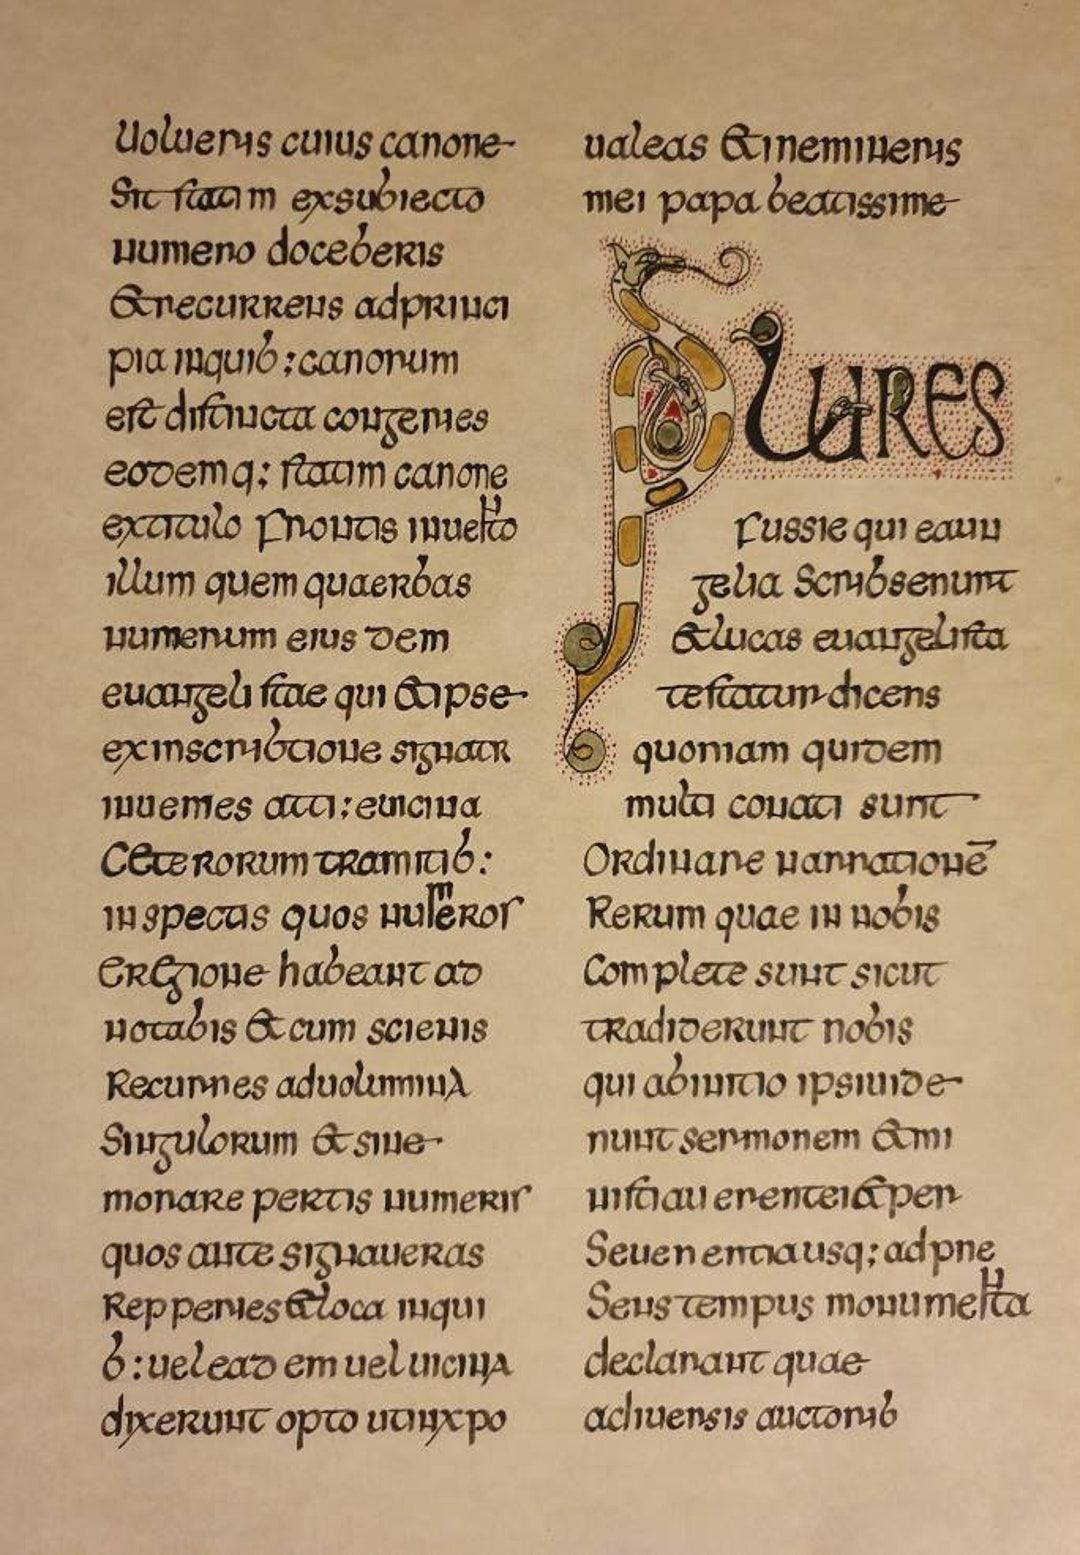 Uolueris cuius canone
Sit statim exsubiecto
numero doceberis
& recurrens adprinci
pia inquib: canorum
est distincta congeries
eodemq; statim canone
extitulo frontis inuento
illum quem quaerbas
numerum eius dem
euangeli stae qui & ipse
exinscribtione signatr
inuenies atti; euicina
Ceterorum tramitib:
inspectis quos numeros
Eregione habeant ad
notabis & cum scienis
Recurries aduolumina
Singulorum & sine
monare pertis numeris
quos ante signaueras
Repperies & loca inqui
b: uel eadem uel uicina
dixerunt opto utinxpo
ualeas & inemineris
mei papa beatissime
PLURES
Fussie qui euan
gelia Scribserunt
& lucas euangelista
testatur dicens
quoniam quidem
multi conati sunt
Ordinare narrationē
Rerum quae in nobis
Complete sunt sicut
tradiderunt nobis
qui abinitio ipsiuide
runt sermonem & mi
nistrau erentei & per
Seueri entiausq; adpre
Sens tempus monumenta
declarant quae
adiuersis auctorib